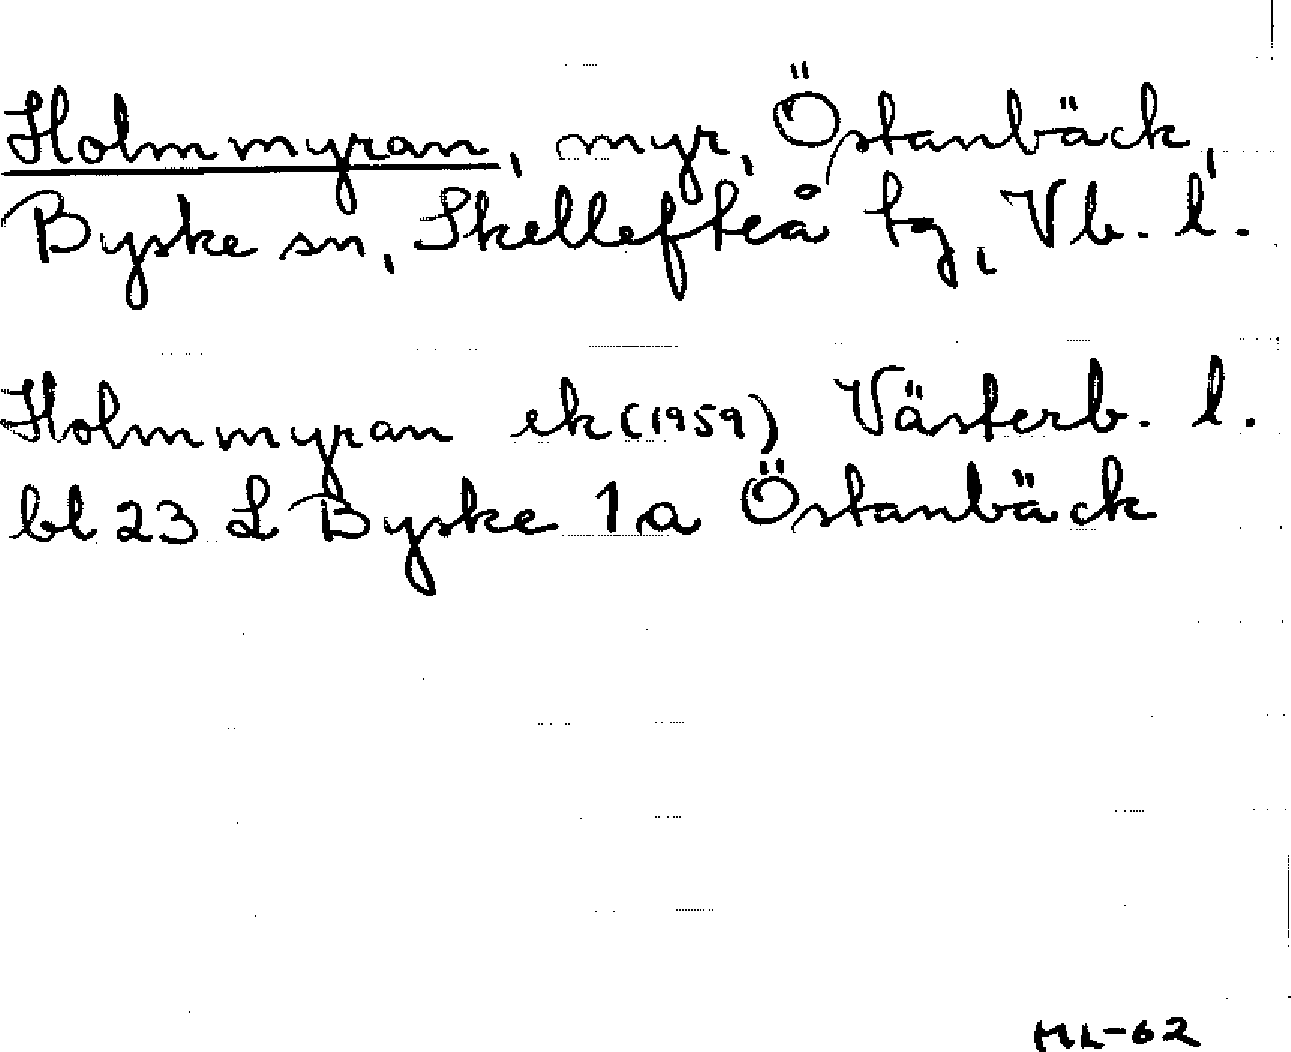 Holmmyran, myr, Östanbäck,
Byske sn, Skellefteå tg, Vb. l.
Holmmyran ek (1959) Västerb. l.
bl 23 L Byske 1a Östanbäck
ML-62